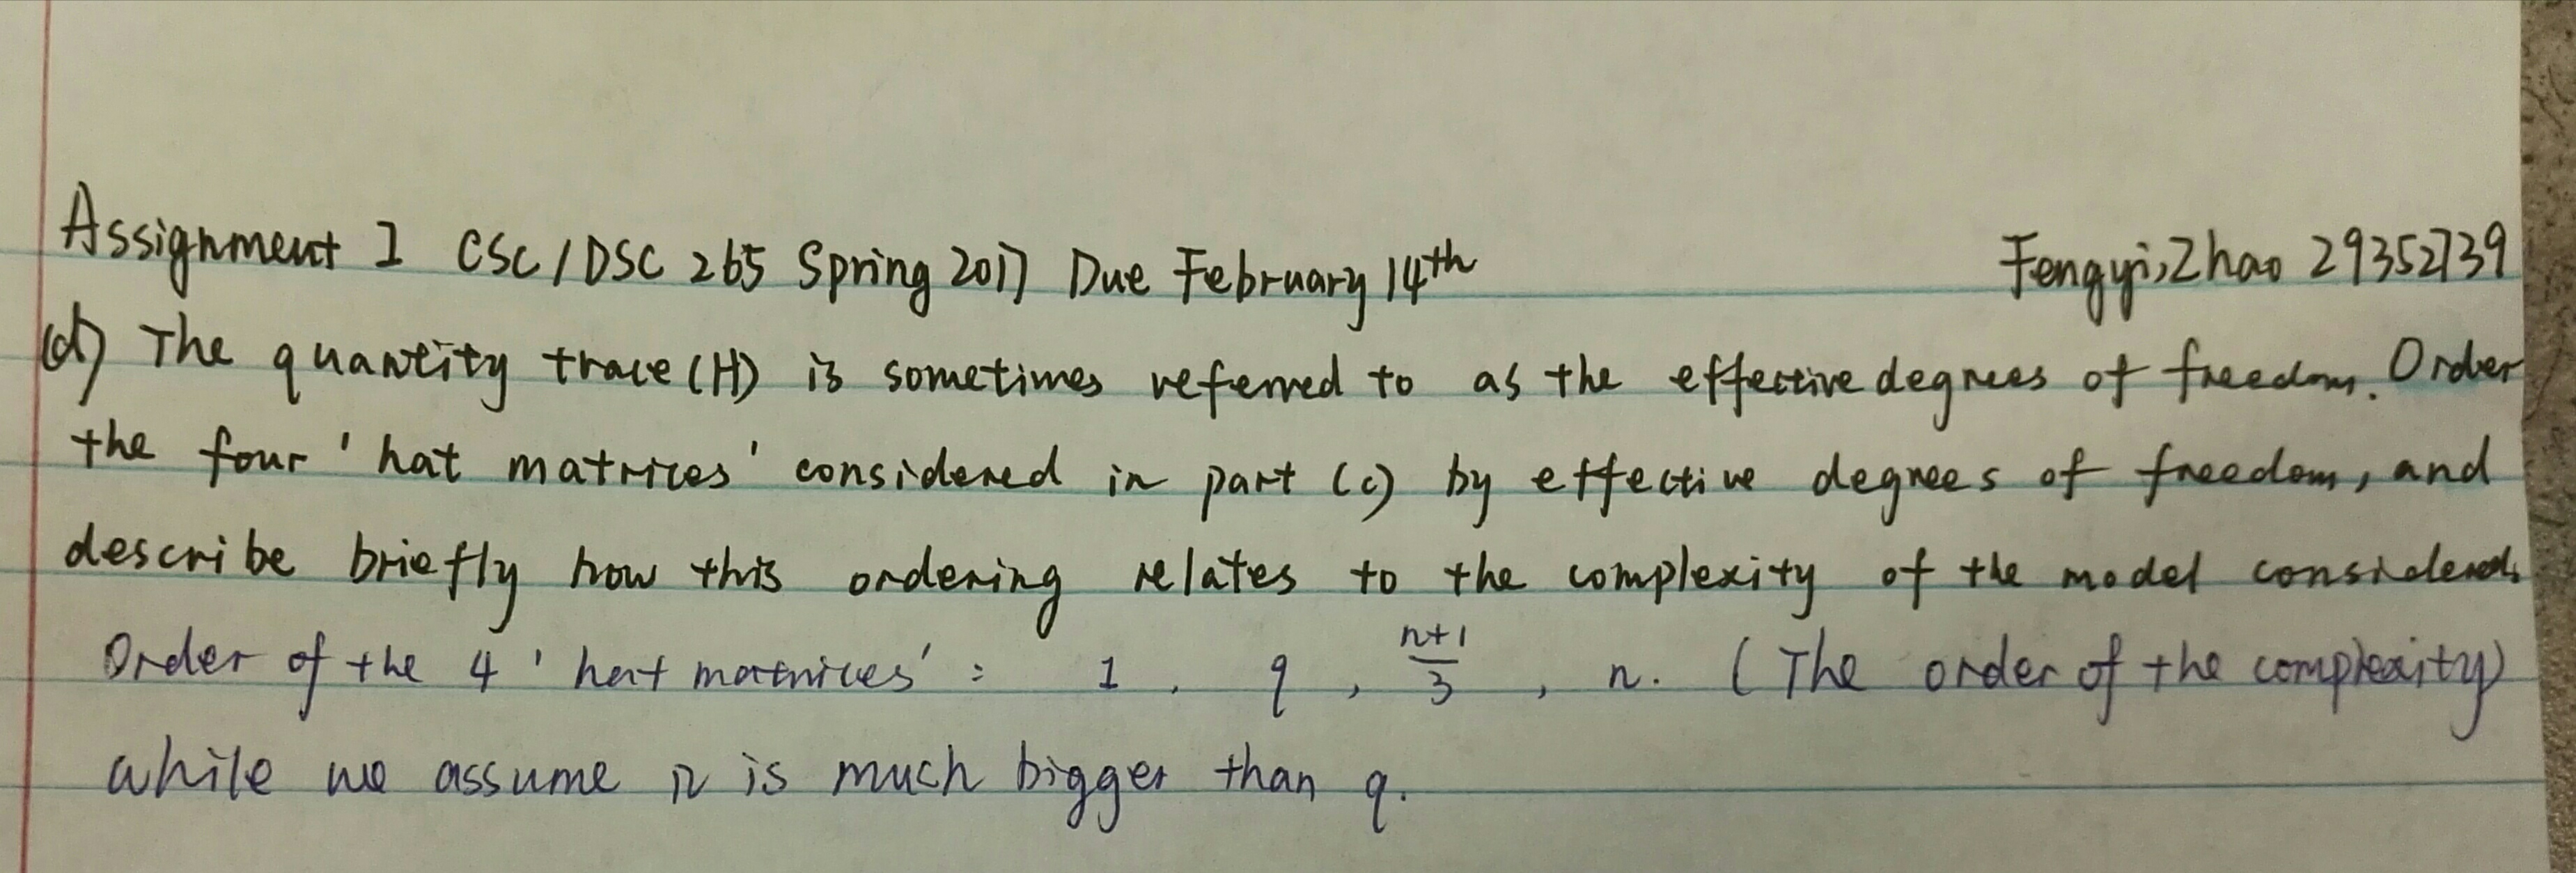 Assignment 1 CSC/DSC 265 Spring 2017 Due February 14th Fengyi Zhao 29352739
(d) The quantity trace(H) is sometimes referred to as the effective degrees of freedom. Order
the four 'hat matrices' considered in part (c) by effective degrees of freedom, and
describe briefly how this ordering relates to the complexity of the model considered.
Order of the 4 'hat matrices': 1, q, (n+1)/3, n. (The order of the complexity)
while we assume n is much bigger than q.